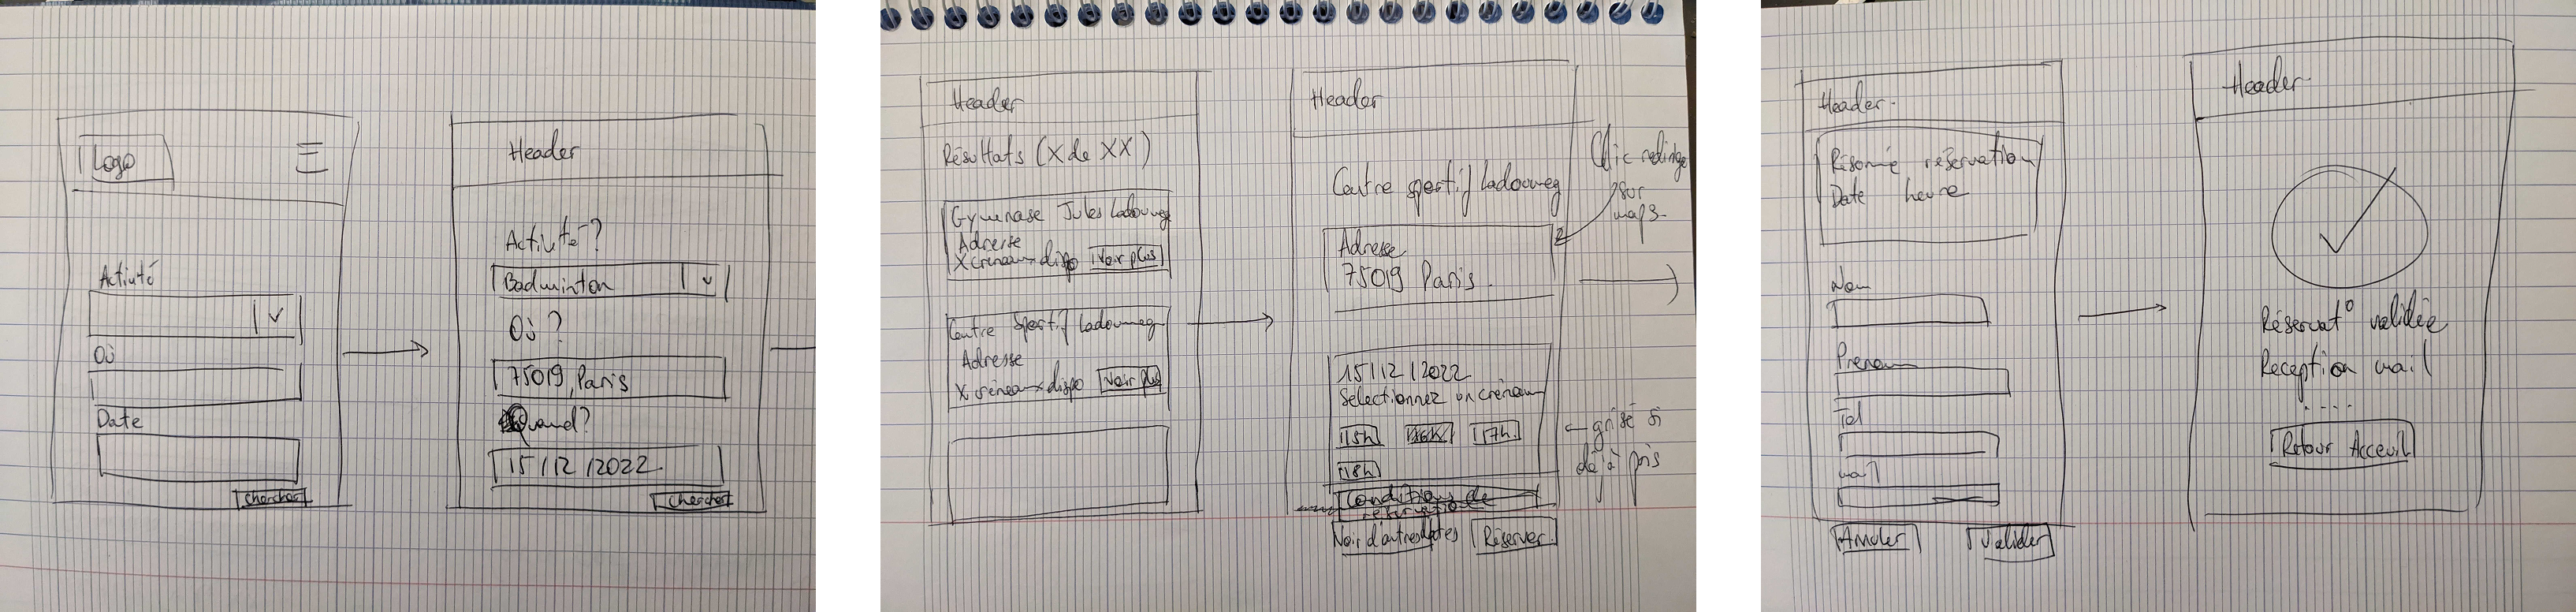 Logo
Activité
Où
Date
Chercher
Header
Activité?
Badminton
Où?
75019, Paris
Quand?
15/12/2022
Chercher
Header
Résultats (X de XX)
Gymnase Jules Ladoumeg
Adresse
X créneaux dispo Voir plus
Centre sportif Ladoumeg
Adresse
X créneaux dispo Voir plus
Header
Centre sportif Ladoumeg
Adresse
75019 Paris.
Clic redirige
sur
maps.
15/12/2022
Selectionnez un créneau
15h 16h 17h
18h
grisé si
déjà pris
Conditions de
réservation
Voir d'autres dates Réserver
Header
Résumé réservation
Date heure
Nom
Prenom
Tel
mail
Annuler Valider
Header
Réservat° validée
Reception mail
....
Retour Acceuil